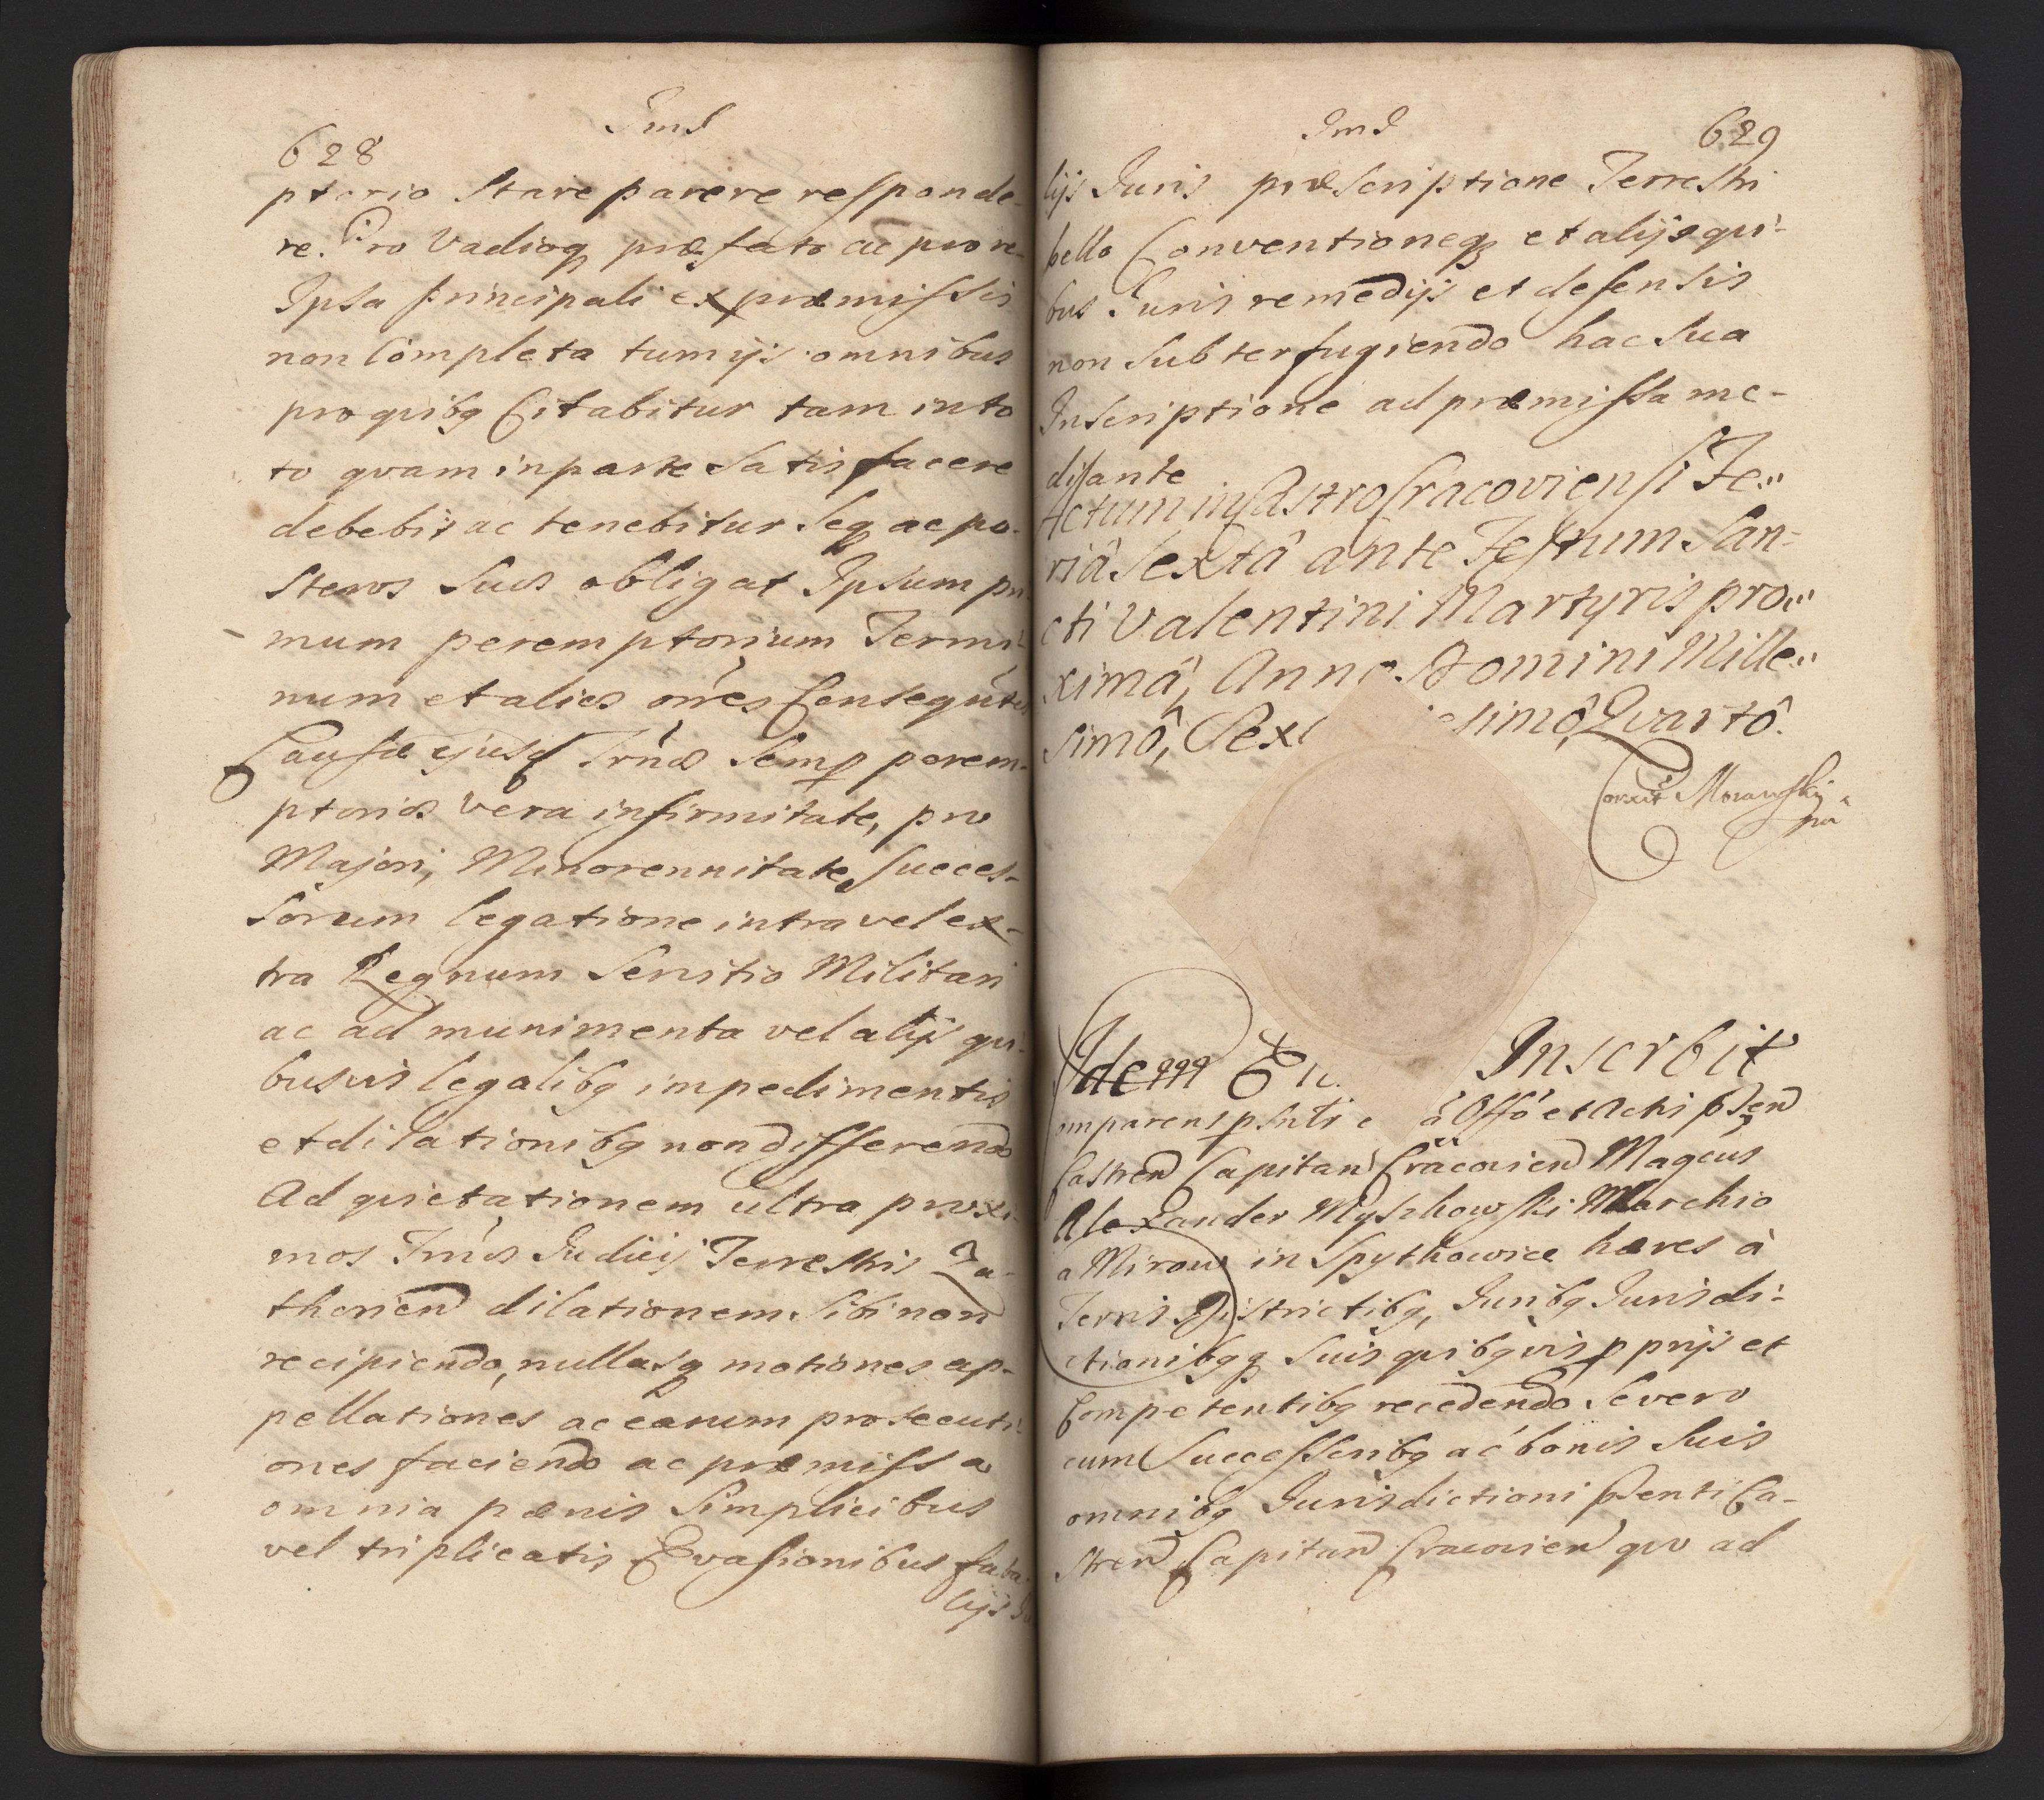 628
ptorio Stare parere responde-
re. Pro Vadioq præfato ac pro re-
Ipsa principali ex præmissis
non Completa tum ijs omnibus
pro quibq Citabitur tam in to
to quam in parte Satisfacere
debebit ac tenebitur Seq ac po-
steros Suos obligat Ipsum pri-
mum peremptorium Termi-
num et alios om̃es Consequ
Causæ ejusd Tr̃næ Semp perem-
ptorios vera infirmitate, pro
Majori, Minorennitate, Succes-
sorum legatione intra vel ex-
tra Regnum Servitio Militari
ac ad munimenta vel alijs qui-
busvis legalibq impedimentis
et dilationibq non differendo
Ad quietationem ultra proxi-
mos Tm̃os Judicij Terrestris Za-
thorien dilationem Sibi non
recipiendo, nullasq motiones ap-
pellationes ac earum prosecuti-
ones faciendo ac præmissa
omnia pænis Simplicibus
vel triplicatis Evasionibus
lijs
629
lijs Juris præscriptione Terrestri
bello Conventioneq et alijs qui-
bus Juris remedijs et defensis
non Subterfugiendo hac Sua
Inscriptione ad præmissa me-
diante
Actum in Castro Cracoviensi Fe-
riâ Sextâ ante Festum San-
cti Valentini Martyris pro-
ximâ, Anno Domini Mille-
simô, Sex esimô, Quartô.
Correxit Morawskij
Idem E Inscrbit
omparens à Offõ et Actis psen
Castren Capitan Cracovien Magcus
Alexander Myszkowski Marchio
a Mirow in Spytkowice hæres à
Terris Districtibq, Juribq Jurisdi-
ctionibqq Suis quibqvis pprijs et
Competentibq recedendo Se vero
cum Successoribq ac bonis Suis
omnibq Jurisdictioni psenti Ca-
stren Capitan Cracovien quo ad